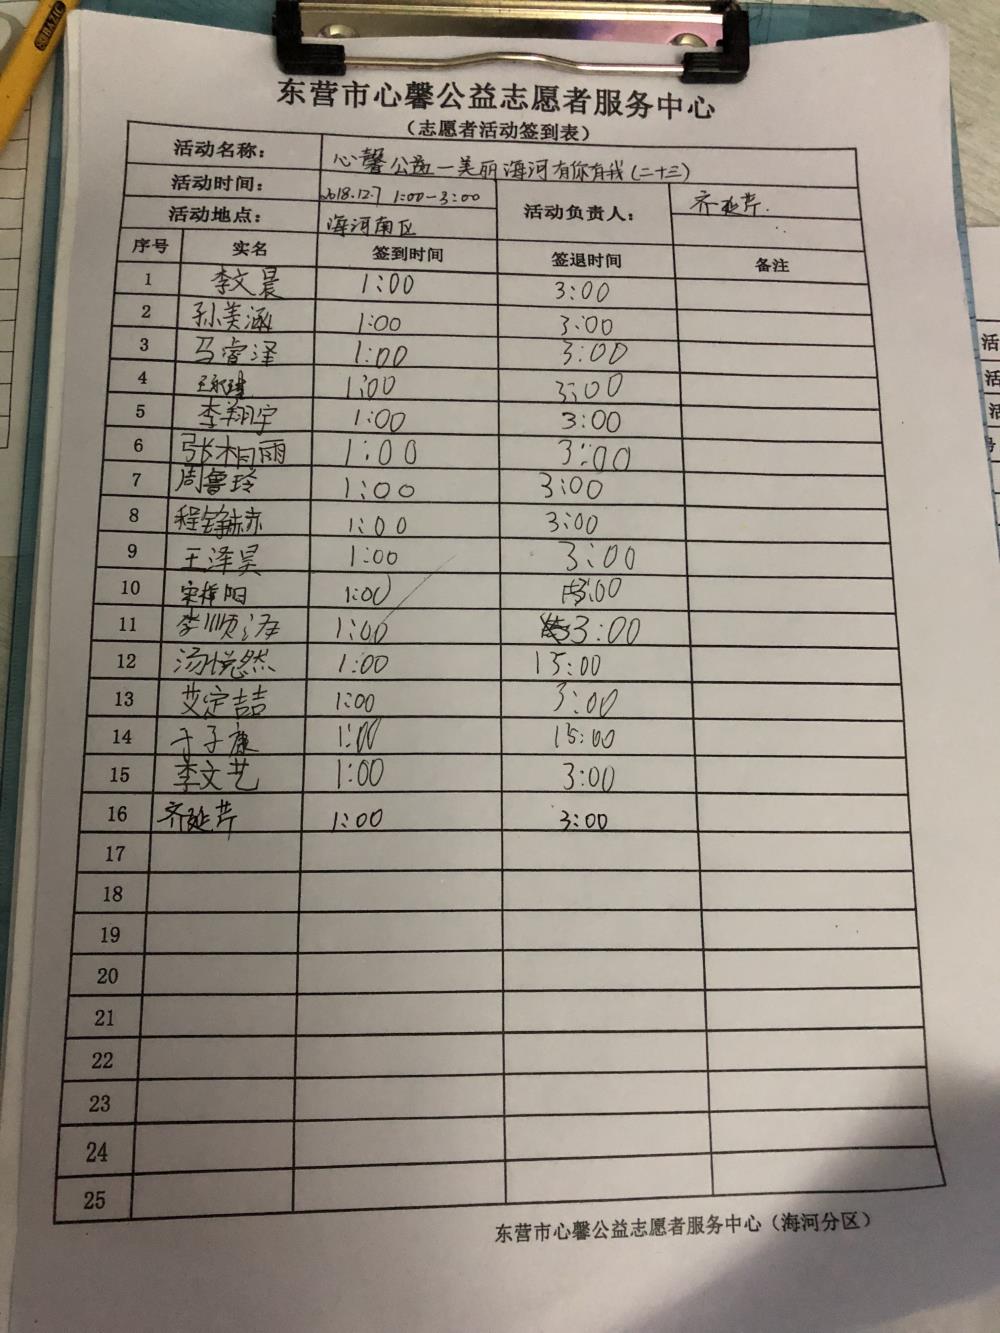 BAZIC
东营市心馨公益志愿者服务中心
（志愿者活动签到表）
活动名称： 心馨公益一美丽海河有你有我(二十三)
活动时间： 2018.12.7 1:00-3:00 活动负责人： 齐延芹.
活动地点： 海河南区
序号 实名 签到时间 签退时间 备注
1 李文晨 1:00 3:00
2 孙美涵 1:00 3:00
3 马睿泽 1:00 3:00
4 1:00 3:00
5 李翔宇 1:00 3:00
6 张桐雨 1:00 3:00
7 周鲁玲 1:00 3:00
8 程 1:00 3:00
9 王泽昊 1:00 3:00
10 宋 阳 1:00 3:00
11 李顺泽 1:00 3:00
12 汤悦然 1:00 15:00
13 艾定喆 1:00 3:00
14 于子康 1:00 15:00
15 李文艺 1:00 3:00
16 齐延芹 1:00 3:00
17
18
19
20
21
22
23
24
25
东营市心馨公益志愿者服务中心（海河分区）
活
活
活
号